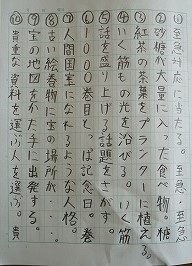 ①至急対応に当たる。至急・至急
②砂糖が大量に入った食べ物。糖
③紅茶の茶葉をプランターに植える。
④いく筋もの光を浴びる。いく筋
⑤話を盛り上げる話題をさがす。
⑥1000巻目とっぱ記念日。巻
⑦人間国宝になれるような人格。
⑧古い絵巻物に宝の場所が・・・
⑨宝の地図をかた手に出発する。
⑩貴重な資料を運ぶ人を選ぶ。貴